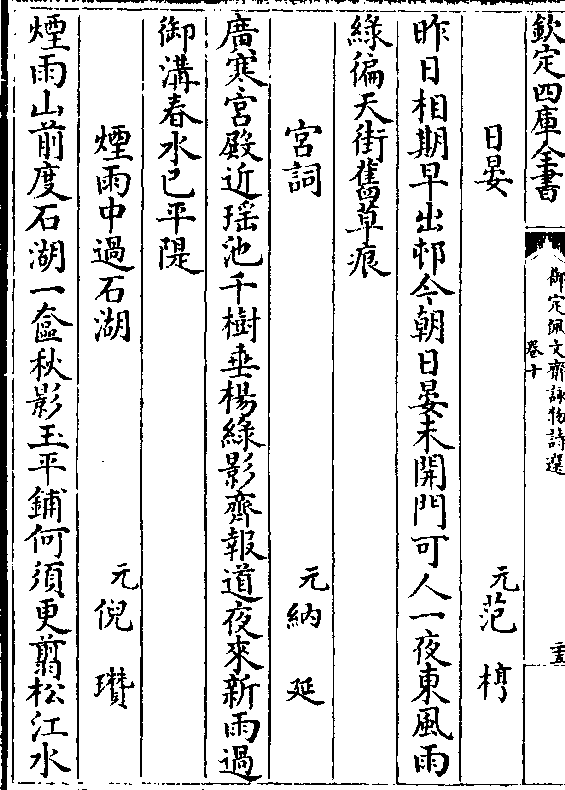 欽定四庫全書
御定佩文齋詠物詩選
卷十
日晏
元范梈
昨日相期早出邨今朝日晏未開門可人一夜東風雨
綠徧天街舊草痕
宮詞
元納延
廣寒宮殿近瑶池千樹垂楊綠影齊報道夜來新雨過
御溝春水已平隄
煙雨中過石湖
元倪瓚
煙雨山前度石湖一奩秋影玉平鋪何須更翦松江水